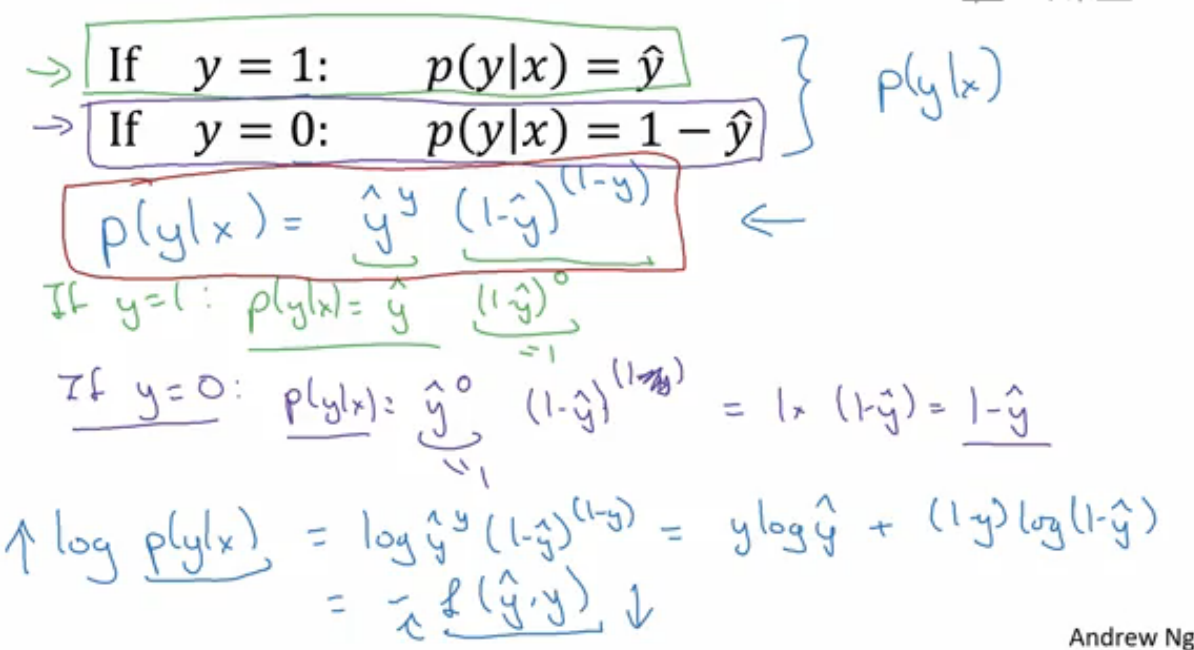 If y = 1: p(y|x) = ŷ
If y = 0: p(y|x) = 1 − ŷ
p(y|x)
p(y|x) = ŷ^y (1-ŷ)^(1-y)
If y=1: p(y|x) = ŷ (1-ŷ)^0
=1
If y=0: p(y|x) = ŷ^0 (1-ŷ)^(1-y) = 1× (1-ŷ) = 1-ŷ
=1
↑ log p(y|x) = log ŷ^y (1-ŷ)^(1-y) = y log ŷ + (1-y) log(1-ŷ)
= - ℒ(ŷ,y) ↓
Andrew Ng